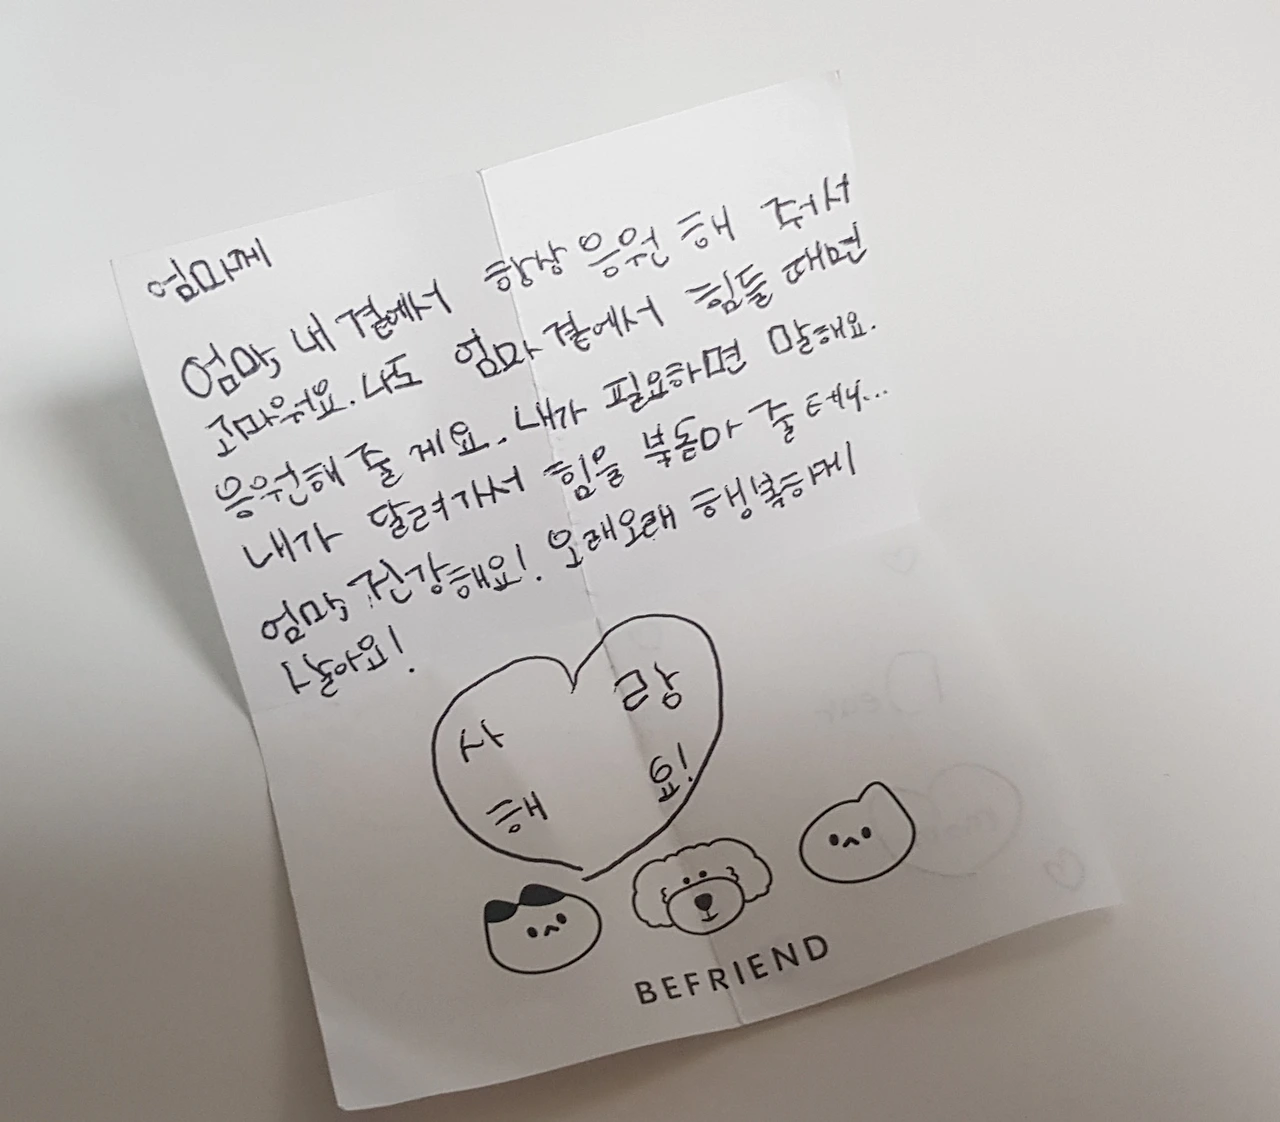 엄마께
엄마, 내 곁에서 항상 응원 해 줘서
고마워요. 나도 엄마 곁에서 힘들 때면
응원해 줄 게요. 내가 필요하면 말해요.
내가 달려가서 힘을 북돋아 줄 테니...
엄마, 건강해요! 오래오래 행복하게
살아요!
사 랑
해 요!
BEFRIEND
Dear
mom